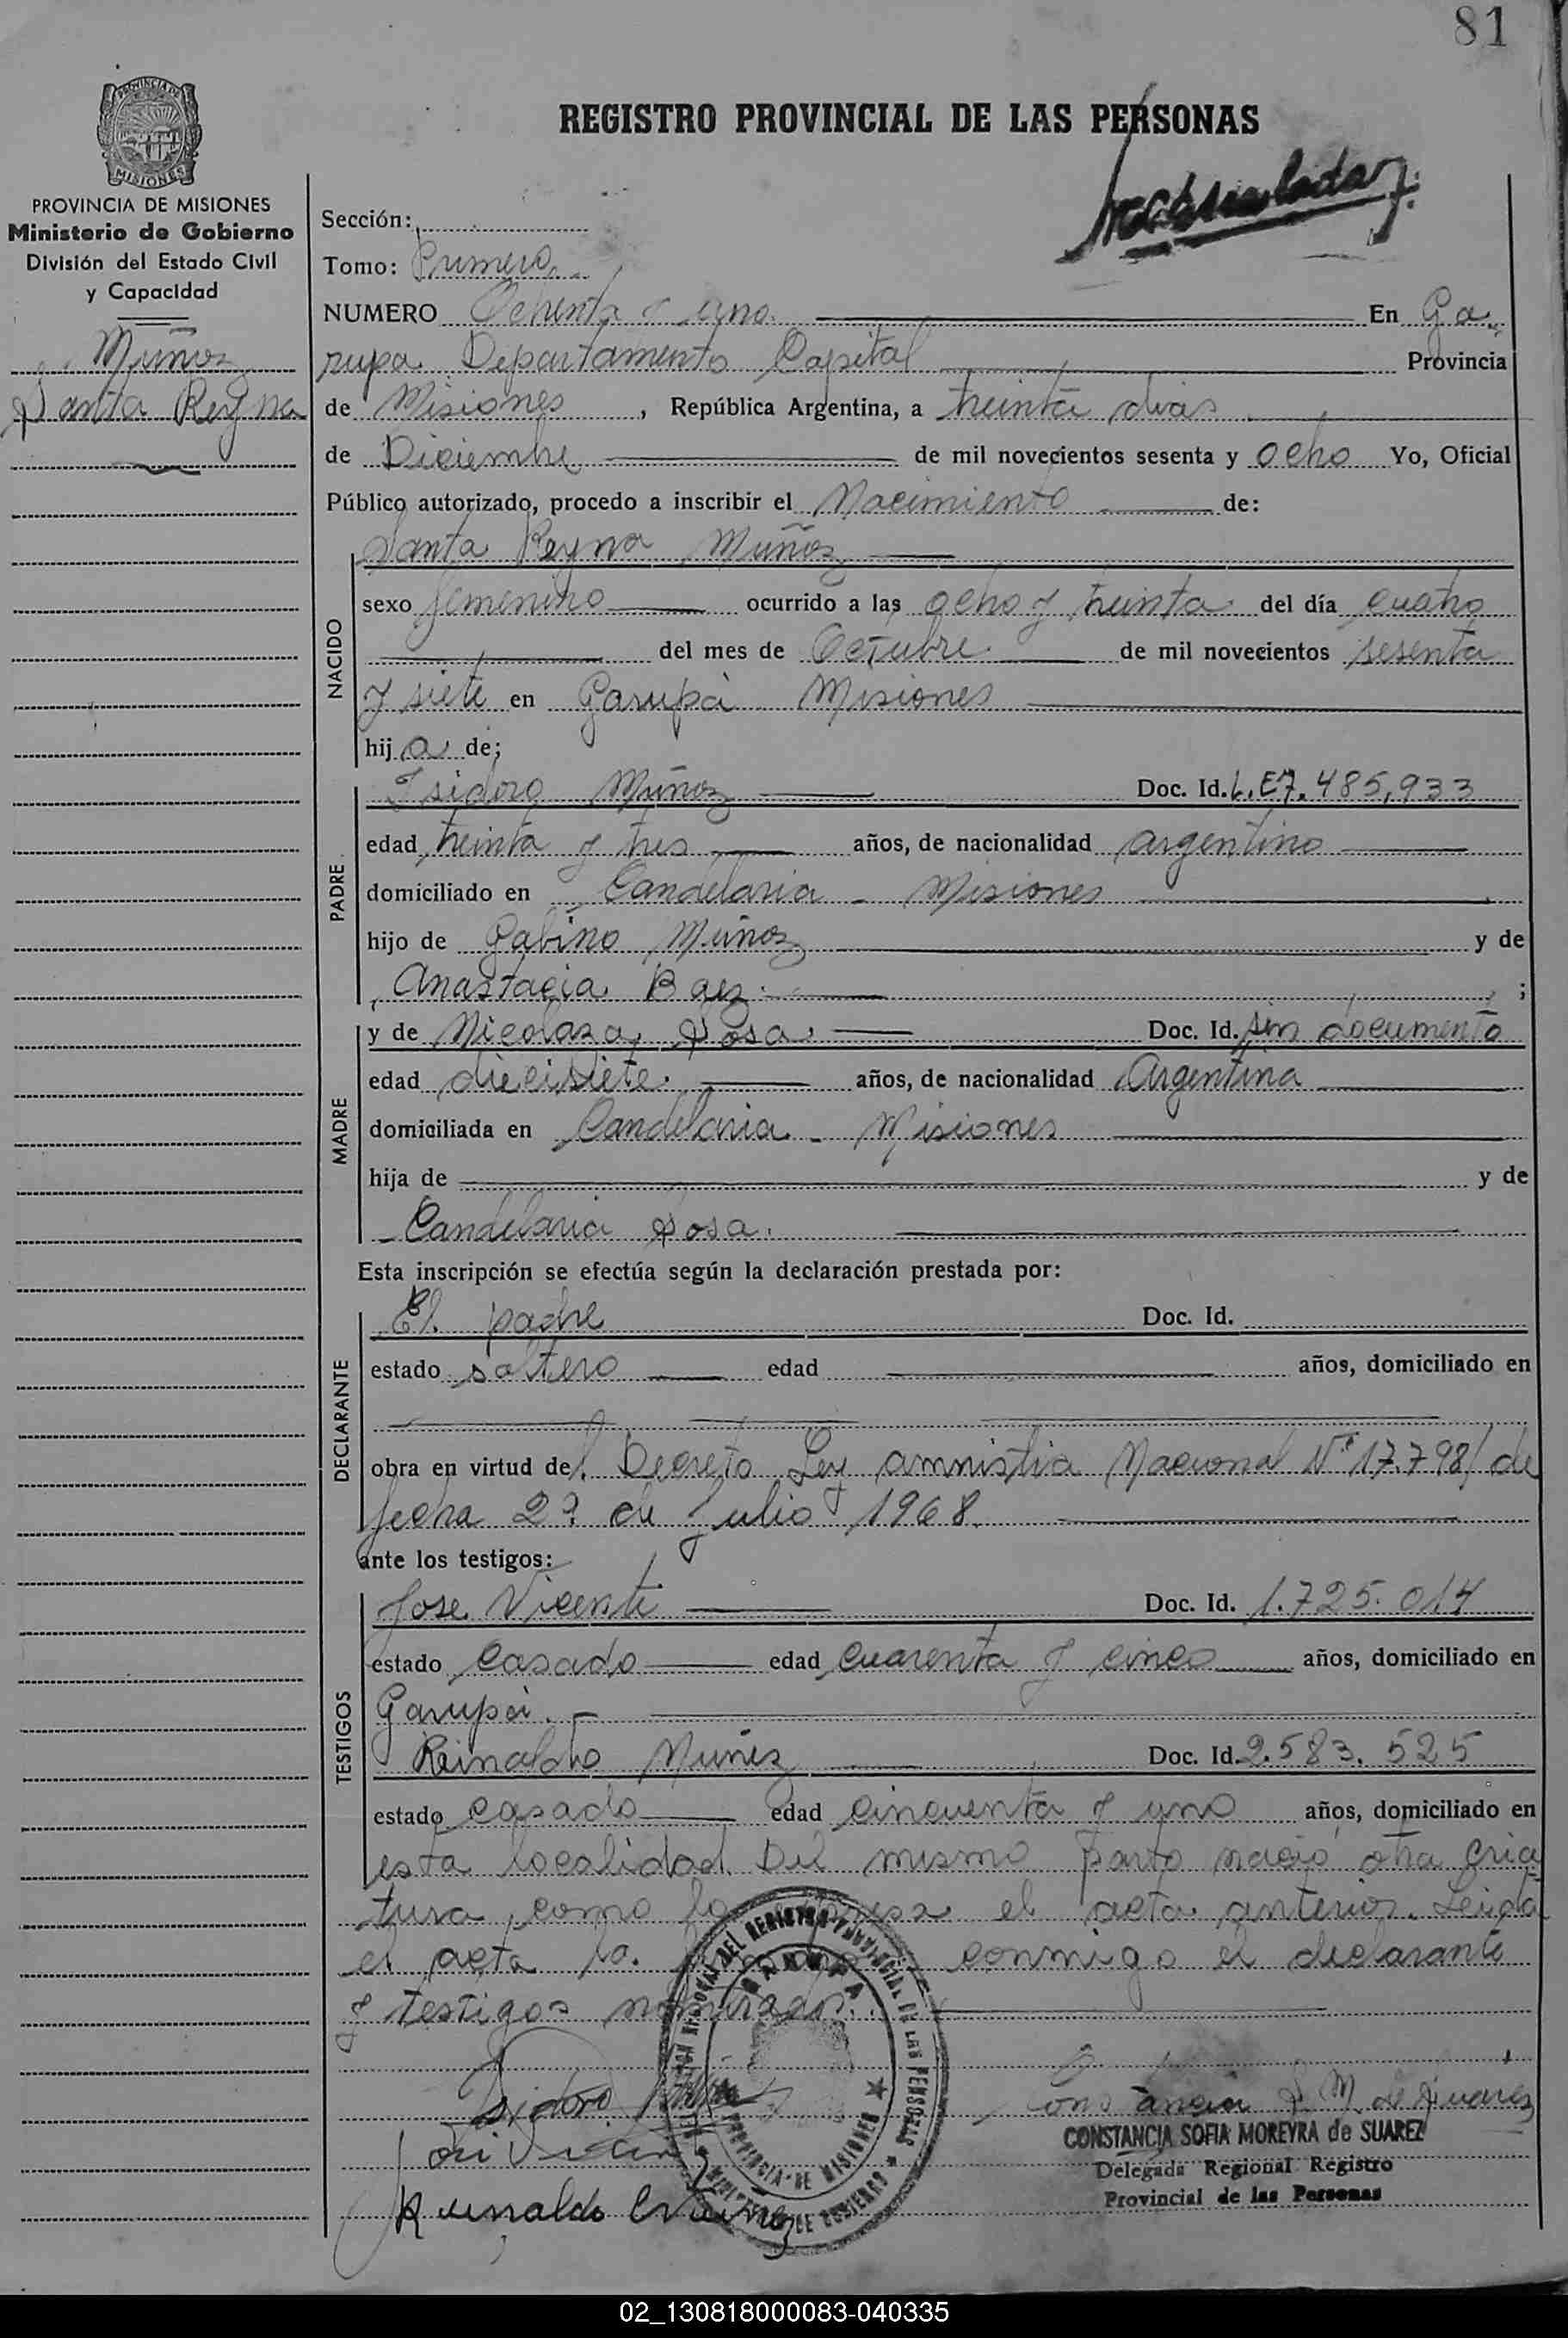 81
REGISTRO PROVINCIAL DE LAS PERSONAS
PROVINCIA DE
MISIONES
PROVINCIA DE MISIONES
Ministerio de Gobierno
División del Estado Civil
y Capacidad
Muñoz
Santa Reyna
Sección:
Tomo: Primero
NUMERO Ochenta y uno. En Ga
rupa Departamento Capital Provincia
de Misiones, República Argentina, a treinta dias
de Diciembre de mil novecientos sesenta y ocho Yo, Oficial
Público autorizado, procedo a inscribir el Nacimiento de:
Santa Reyna Muñoz
NACIDO
sexo femenino ocurrido a las ocho y treinta del día cuatro
del mes de Octubre de mil novecientos sesenta
y siete en Garupá Misiones
hija de;
PADRE
Isidoro Muñoz Doc. Id. L.E 7.485,933
edad treinta y tres años, de nacionalidad argentino
domiciliado en Candelaria - Misiones
hijo de Gabino Muñoz y de
Anastacia Baez. ;
MADRE
y de Nicolaza Sosa. Doc. Id. sin documento
edad diecisiete. años, de nacionalidad Argentina
domiciliada en Candelaria - Misiones
hija de y de
Candelaria Sosa.
Esta inscripción se efectúa según la declaración prestada por:
DECLARANTE
El padre Doc. Id.
estado soltero edad años, domiciliado en
obra en virtud del Decreto Ley amnistia Nacional Nº 17.798/ de
fecha 2º de Julio 1968.
ante los testigos:
TESTIGOS
Jose Vicente Doc. Id. 1.725.014
estado casado edad cuarenta y cinco años, domiciliado en
Garupá. -
Reinaldo Nuñez Doc. Id. 2.583.525
estado casado edad cincuenta y uno años, domiciliado en
esta localidad. Del mismo parto nació otra cria
tura, como lo expresa el acta anterior. Leida
el acta la conmigo el declarante
y testigos nombrados.
Isidoro
GARUPA
PROVINCIA DE MISIONES
Constancia S. M. de Suarez
CONSTANCIA SOFIA MOREYRA de SUAREZ
Delegada Regional Registro
Provincial de las Personas
Reinaldo Nuñez
02_130818000083-040335